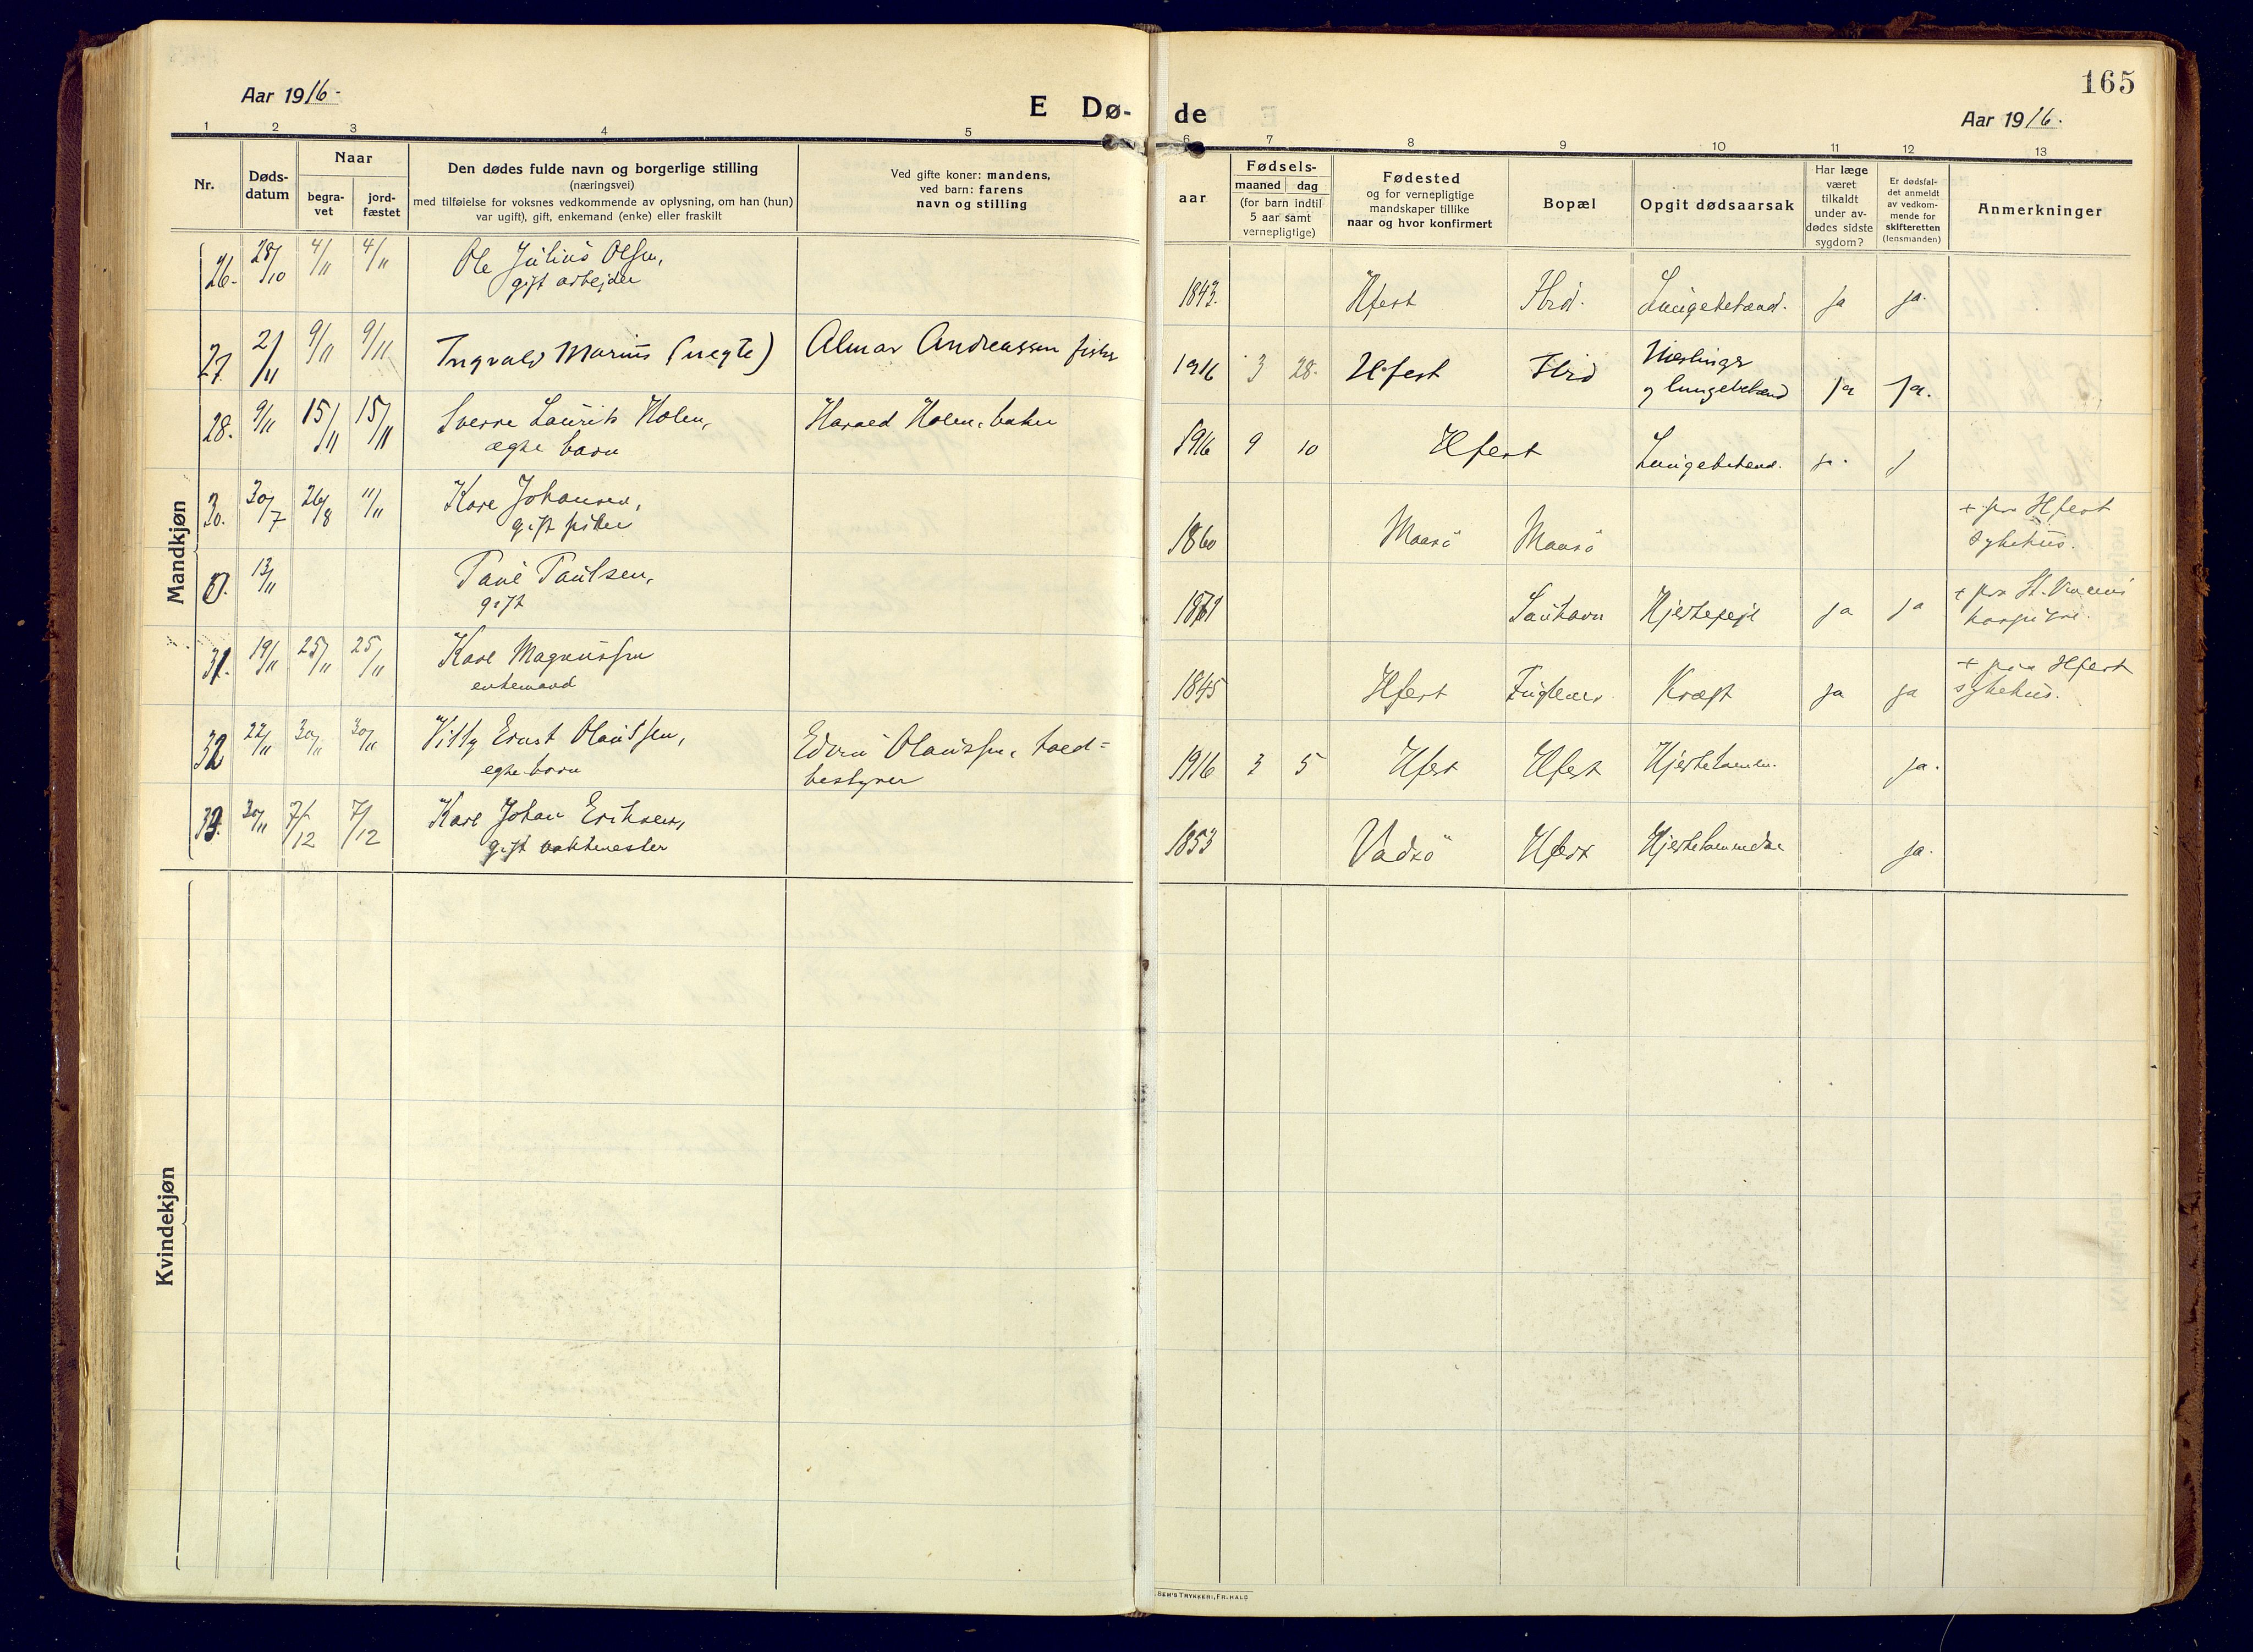 165
Aar 1916.
E Dø-
de
Aar 1916.
1 2 3 4 5 6 7 8 9 10 11 12 13
Nr.
Døds-
datum
Naar
begra-
vet
jord-
fæstet
Den dødes fulde navn og borgerlige stilling
(næringsvei)
med tilføielse for voksnes vedkommende av oplysning, om han (hun)
var ugift), gift, enkemand (enke) eller fraskilt
Ved gifte koner: mandens,
ved barn: farens
navn og stilling
aar
Fødsels-
maaned dag
(for barn indtil
5 aar samt
vernepligtige)
Fødested
og for vernepligtige
mandskaper tillike
naar og hvor konfirmert
Bopæl
Opgit dødsaarsak
Har læge
været
tilkaldt
under av-
dødes sidste
sygdom?
Er dødsfal-
det anmeldt
av vedkom-
mende for
skifteretten
(lensmanden)
Anmerkninger
Mandkjøn
26. 28/10 4/11 4/11 Ole Julius Olsen, 1843. Hfest Lungebetænd. ja ja.
gift arbejder
27. 2/11 9/11 9/11 Ingvald Marius (uegte) Almar Andreassen fisker 1916 3 28. Hfest
og lungebetænd ja ja.
28. 9/11 15/11 15/11 Sverre Laurits Holen, Harald Holen, baker 1916 9 10 Hfest Lungebetænd. ja.
ægte barn
30. 30/7 26/8 11/11 Karl Johansen, 1860 Maasö Maasö + paa Hfest
gift fisker sykehus.
0. 13/11 Paul Paulsen, ja ja + paa St. Vincens
gift hospital.
31. 19/11 25/11 25/11 Karl Magnussen 1845 Hfest Fuglenes Kræft ja ja + paa Hfest
enkemand sykehus.
32 22/11 30/11 30/11 Willy Ernst Olaussen, Edvin Olaussen, 1916 3 5 Hfest Hfest ja.
egte barn bestyrer
33. 30/11 7/12 7/12 Karl Johan Eriksen, 1853 Vadsö Hfest Hjertelammelse ja.
gift vaktmester
Kvindekjøn
SEM'S TRYKKERI, FR.HALD